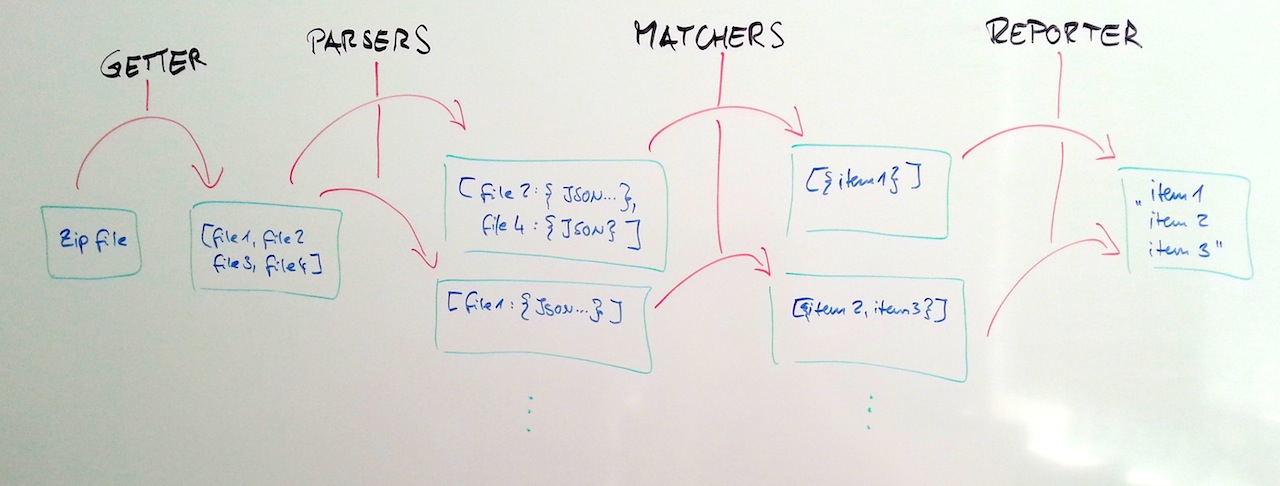 GETTER
PARSERS
MATCHERS
REPORTER
Zip file
[file1, file2
file3, file4]
[file2:{JSON...},
file4:{JSON}]
[file1:{JSON...}]
[{item1}]
[{item2, item3}]
„item1
item2
item3"